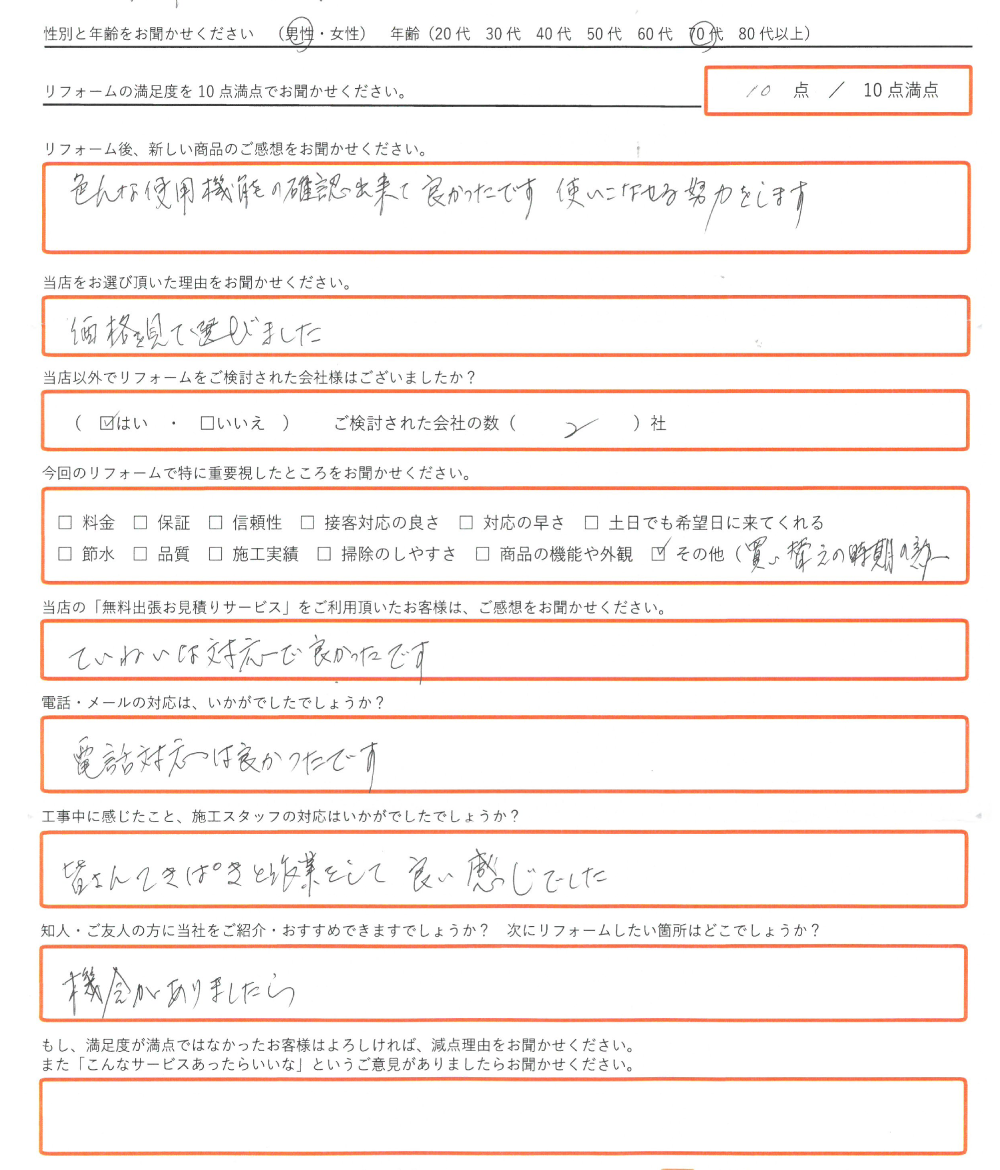 性別と年齢をお聞かせください （男性・女性） 年齢（20代 30代 40代 50代 60代 70代 80代以上）
リフォームの満足度を10点満点でお聞かせください。 10 点 / 10点満点
リフォーム後、新しい商品のご感想をお聞かせください。
色んな使用機能の確認出来て良かったです 使いこなせる努力をします
当店をお選び頂いた理由をお聞かせください。
価格を見て選びました
当店以外でリフォームをご検討された会社様はございましたか？
（ ☑はい ・ □いいえ ） ご検討された会社の数（ 2 ）社
今回のリフォームで特に重要視したところをお聞かせください。
□ 料金 □ 保証 □ 信頼性 □ 接客対応の良さ □ 対応の早さ □ 土日でも希望日に来てくれる
□ 節水 □ 品質 □ 施工実績 □ 掃除のしやすさ □ 商品の機能や外観 ☑ その他（買い替えの時期の為
当店の「無料出張お見積りサービス」をご利用頂いたお客様は、ご感想をお聞かせください。
ていねいな対応で良かったです
電話・メールの対応は、いかがでしたでしょうか？
電話対応は良かったです
工事中に感じたこと、施工スタッフの対応はいかがでしたでしょうか？
皆さんてきぱきと作業をして良い感じでした
知人・ご友人の方に当社をご紹介・おすすめできますでしょうか？ 次にリフォームしたい箇所はどこでしょうか？
機会がありましたら
もし、満足度が満点ではなかったお客様はよろしければ、減点理由をお聞かせください。
また「こんなサービスあったらいいな」というご意見がありましたらお聞かせください。